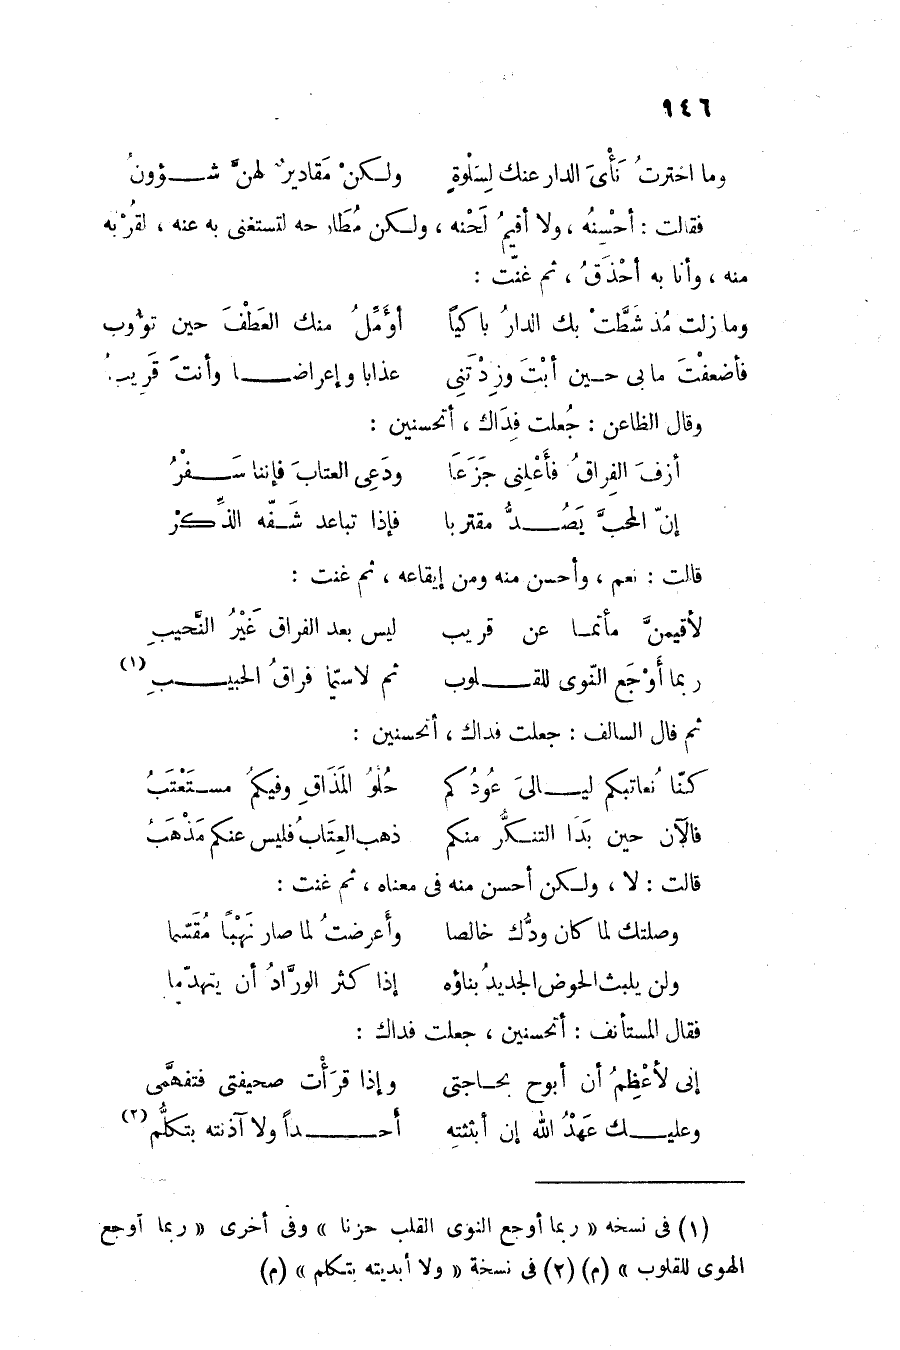 ٩٤٦
وما اخترتُ نَأْىَ الدار عنك لِسَلْوةٍ ولكنْ مَقاديرٌ لهنَّ شــؤونُ
فقالت : أحْسِنُه ، ولا أقيمُ لَحْنه ، ولكن مُطَارحه لتستغنى به عنه ، لقُرْبه
منه ، وأنا به أحْذَقُ ، ثم غنّت :
وما زلت مُذ شَطَّتْ بك الدارُ باكيًا أُوَمِّلُ منك العَطْفَ حين تؤوب
فأضعفْتَ ما بى حــين أبْتَ وزِدْتَنِى عذابا وإعراضــا وأنتَ قَرِيبُ
وقال الظاعن : جُعلت فِدَاك ، أتحسنين :
أزفَ الفِراقُ فأَعْلِنِى جَزَعَا ودَعِى العتابَ فإننا سَــفْرُ
إنّ المحبَّ يَصُــدُّ مقتربا فإذا تباعد شَــفّه الذِّكْرُ
قالت : نعم ، وأحسن منه ومن إيقاعه ، ثم غنت :
لأقيمنَّ مأتمــا عن قريب ليس بعد الفراق غَيْرُ النَّحِيبِ
ربما أَوْجَع النّوى للقــلوب ثم لاسيّما فراقُ الحبيــبِ (١)
ثم قال السالف : جعلت فداك ، أتحسنين :
كنّا نُعاتبكم ليــالىَ عُودُكم حُلْوُ المَذَاقِ وفيكمُ مســتَعْتَبُ
فالآن حين بَدَا التنــكُّر منكم ذهب العِتَابُ فليس عنكم مَذْهَبُ
قالت : لا ، ولكن أحسن منه فى معناه ، ثم غنت :
وصلتك لما كان ودُّك خالصا وأَعرضتُ لما صار نَهْبًا مُقَسَّما
ولن يلبث الحوض الجديدُ بناؤه إذا كثر الورَّادُ أن يتهدّما
فقال المستأنف : أتحسنين ، جعلت فداك :
إنى لأعْظِمُ أن أبوح بحــاجتى وإذا قرَأْت صحيفتى فتفهَّمى
وعليــك عَهْدُ الله إن أبثثته أحــداً ولا آذنته بتكلُّم (٢)
(١) فى نسخه « ربما أوجع النوى القلب حزنا » وفى أخرى « ربما أوجع
الهوى للقلوب » (م) (٢) فى نسخة « ولا أبديته بتكلم » (م)